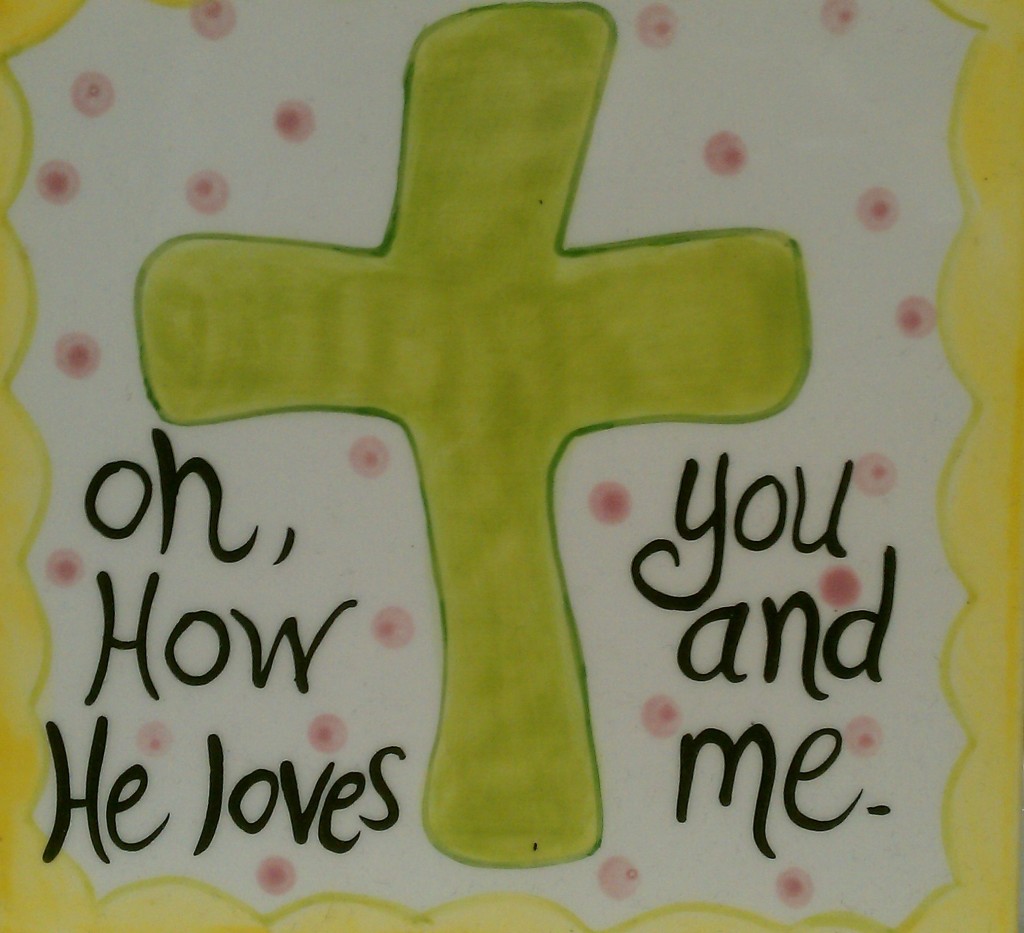 oh,
How
He loves
you
and
me.